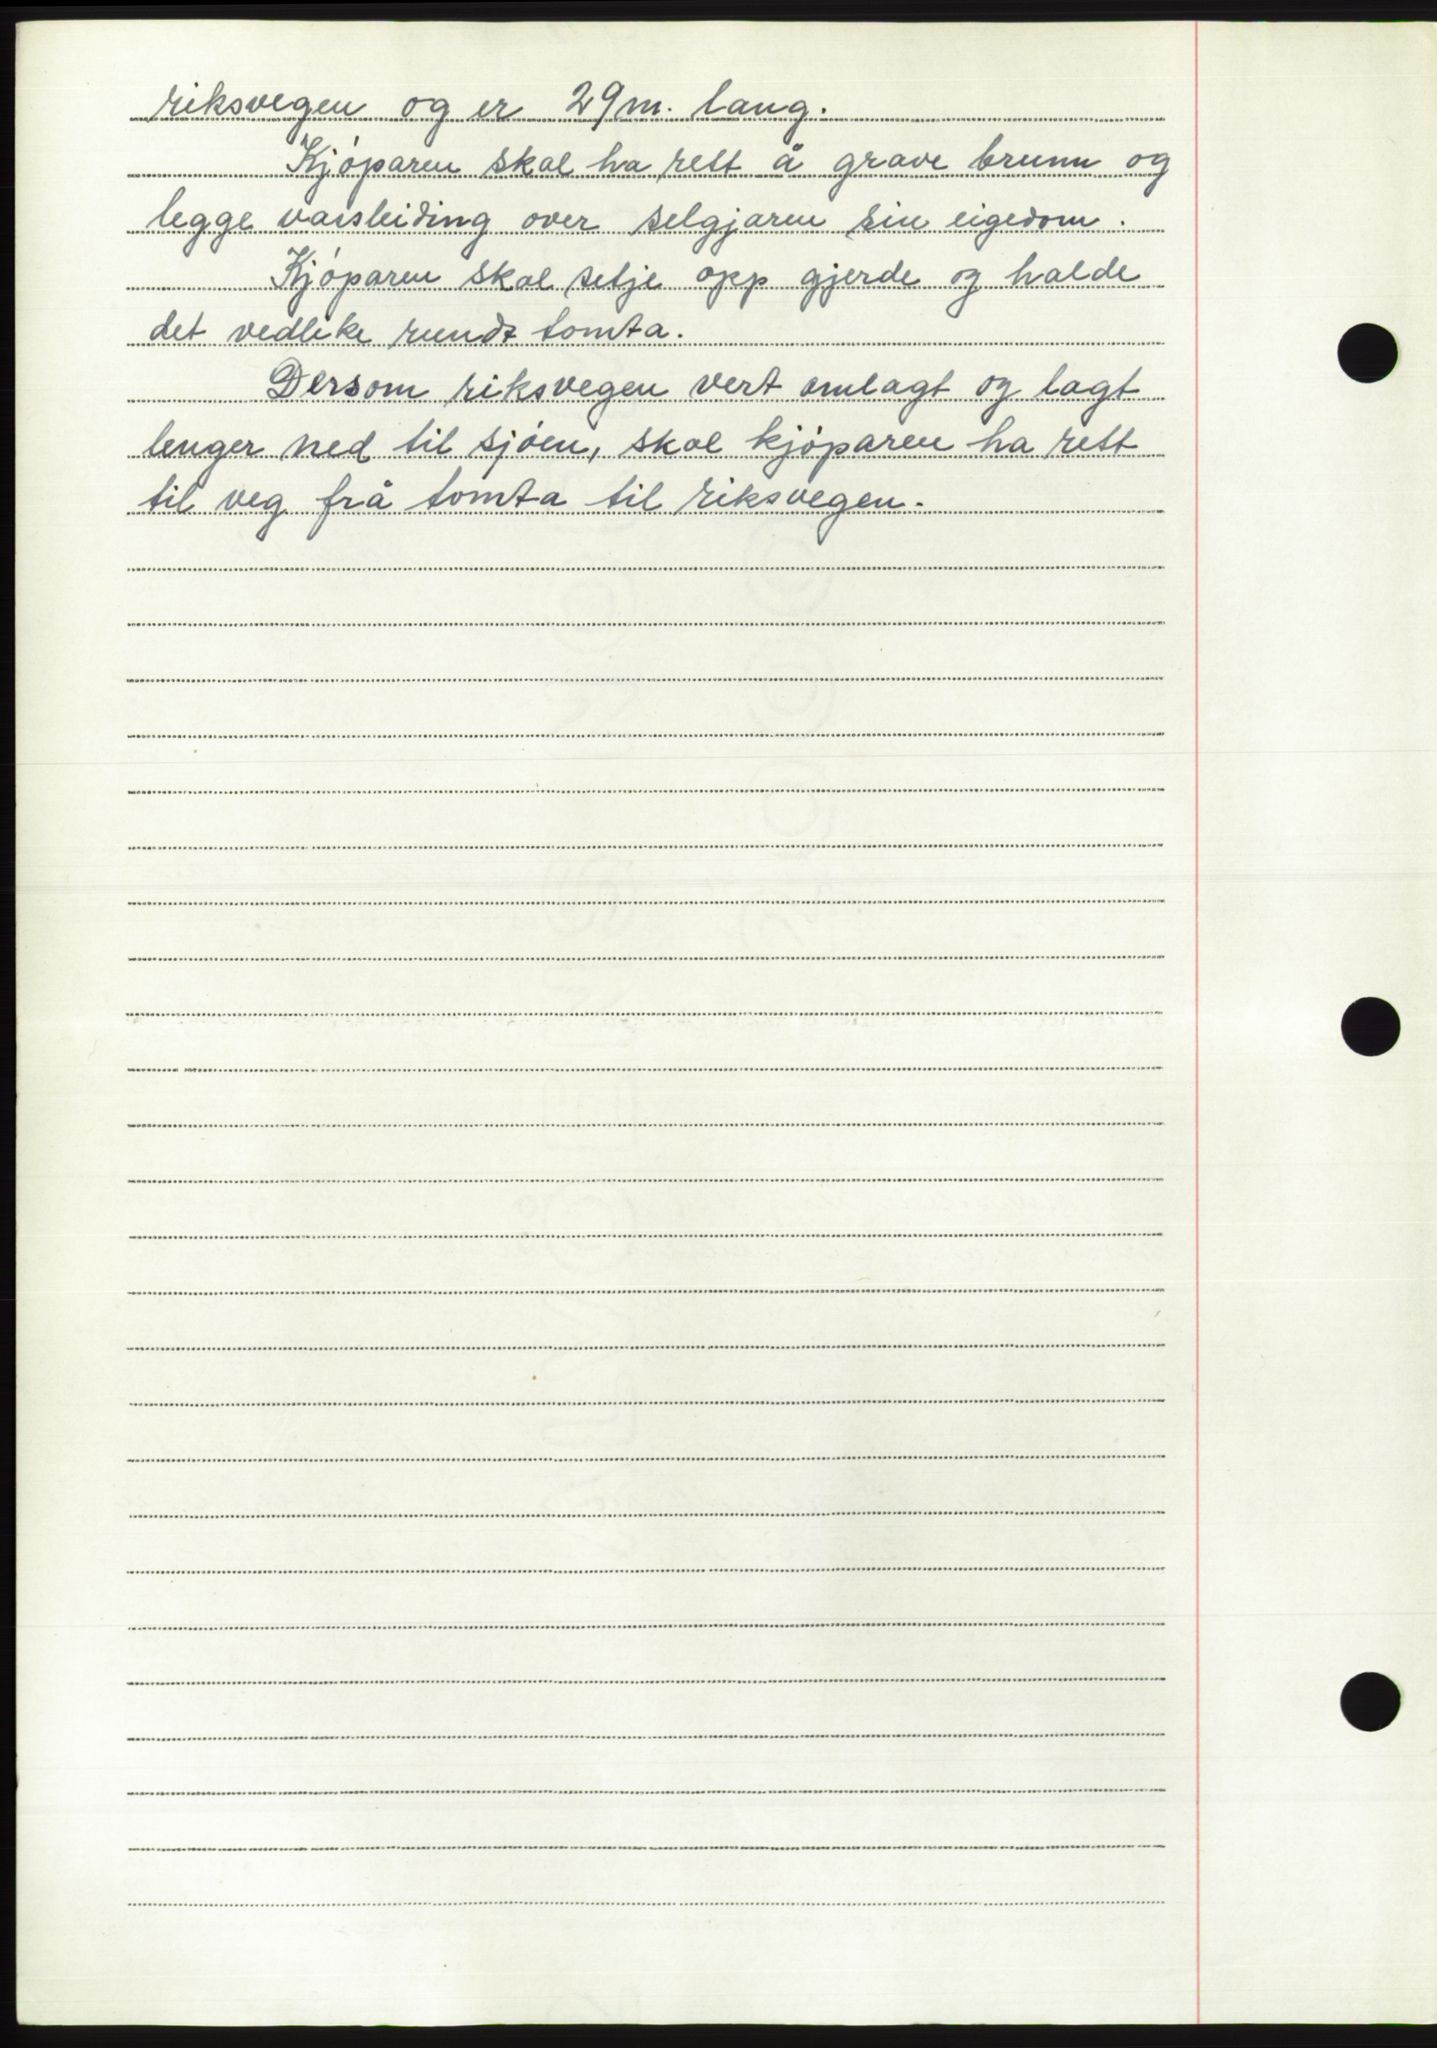 riksvegen og er 29 m. lang.
Kjóparen skal ha rett å grave brunn og
legge vassleiding over seljaren sin eigedom.
Kjóparen skal setje opp gjerde og halde
det vedlike rundt tomta.
Dersom riksvegen vert omlagt og lagt
lenger ned til sjóen, skal kjóparen ha rett
til veg frå tomta til riksvegen.